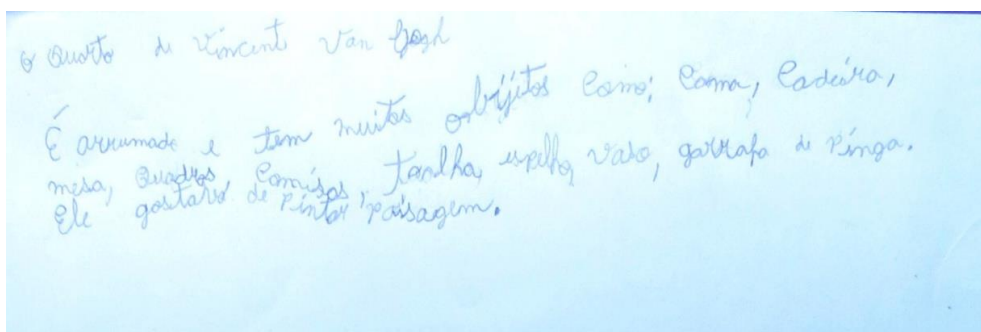 O Quarto de Vincent Van Gogh
É arrumado e tem muitos onbijitos Como; Cama, Cadeira,
mesa, Quadros, Camisas, Toralha, espelho, vaso, garrafa de Pinga.
Ele gostava de Pintar paisagem.